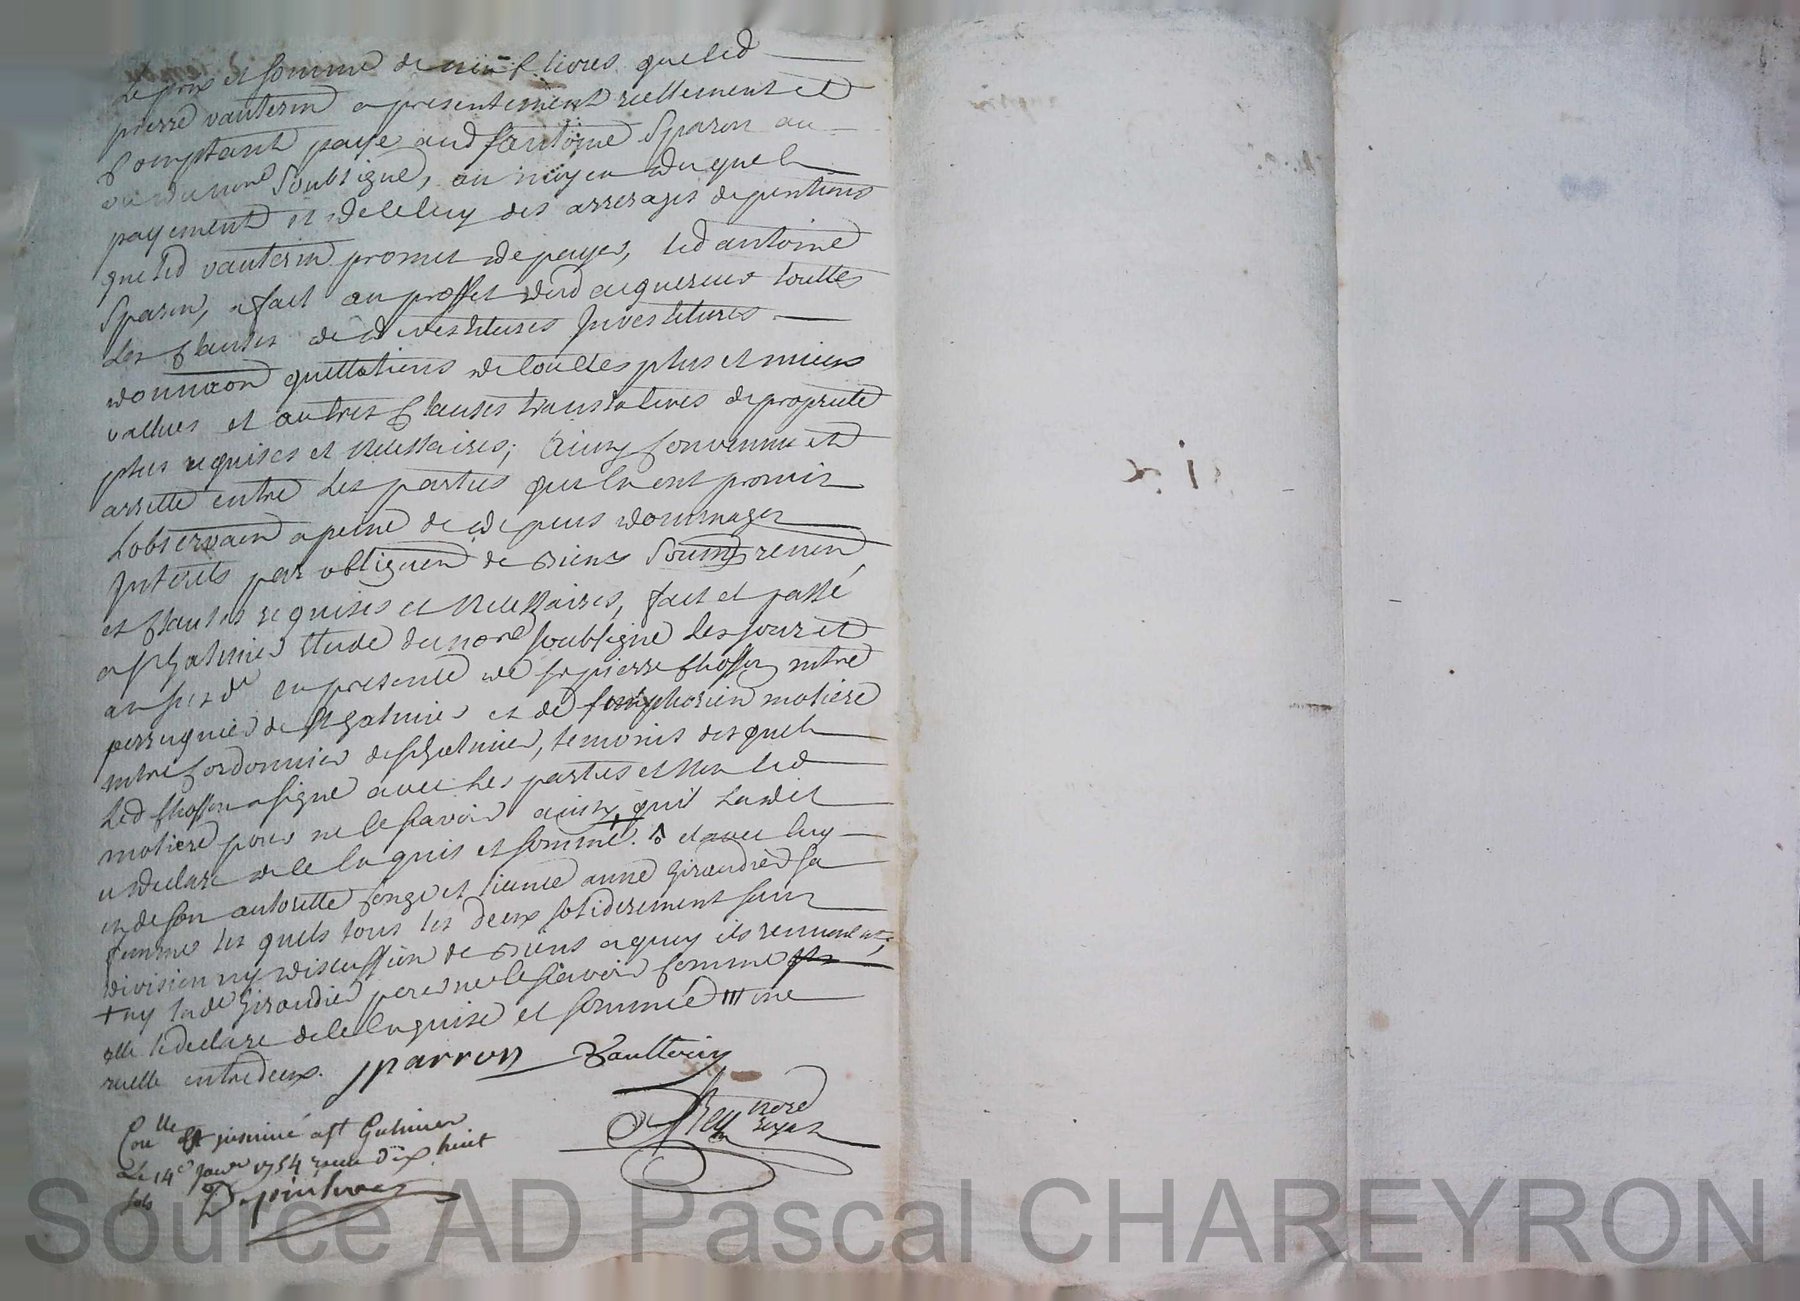 Le prix et somme de neuf livres que led
pierre vauterin a presentement reellement et
Comptant payé aud Sr antoine Sparon au
vu du nore soubsigné, au moyen du quel
payement et de celuy des arrerages de pentions
que led vauterin promet de payer, led antoine
Sparon, a fait au proffet dud acquereur touttes
Les Clauses de devestitures Investitures
donnaon quittations de touttes plus et mieux
vallues et autres Clauses translatives de propriété
plus requises et necessaires; Ainsy Convenu et
arretté entre Les parties qui l'ont promis
L'observaon a peine de depens dommages
Interets par obligaon de biens soumon renon
et Clauses requises et necessaires, fait et passé
a St Galmier Etude du nore soubsigné Les jour et
an susd en presence de Sr pierre Chosson mtre
perruquier de St Galmier et de simphorien motiere
mtre Cordonnier de St Galmier, temoins desquels
Led Chosson a signé avec Les parties et non led
motiere pour ne le scavoir ainsy qu'il La dit
et declaré de ce enquis et sommé. et avec luy
et de son autorité Congé et licence anne Giraudier sa
femme les quels tous les deux solidairement sans
division ny discussion de biens a quoy ils renoncent,
+ ny lad Giraudier pour ne le scavoir Comme
elle l'a declaré de ce enquise et sommée III une
ruelle entredeux. Sparron Vautterin
Rey nore
royal
Conlle Et insinué a St Galmier
Le 14e Janer 1754 recu dix huit
sols
Source AD Pascal CHAREYRON